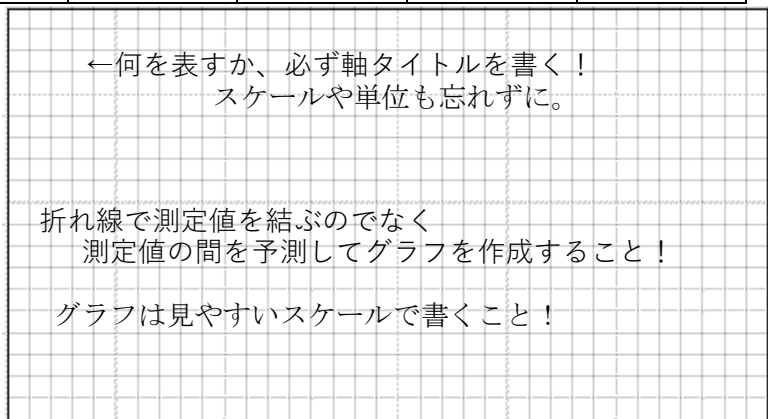 ←何を表すか、必ず軸タイトルを書く！
スケールや単位も忘れずに。
折れ線で測定値を結ぶのでなく
測定値の間を予測してグラフを作成すること！
グラフは見やすいスケールで書くこと！